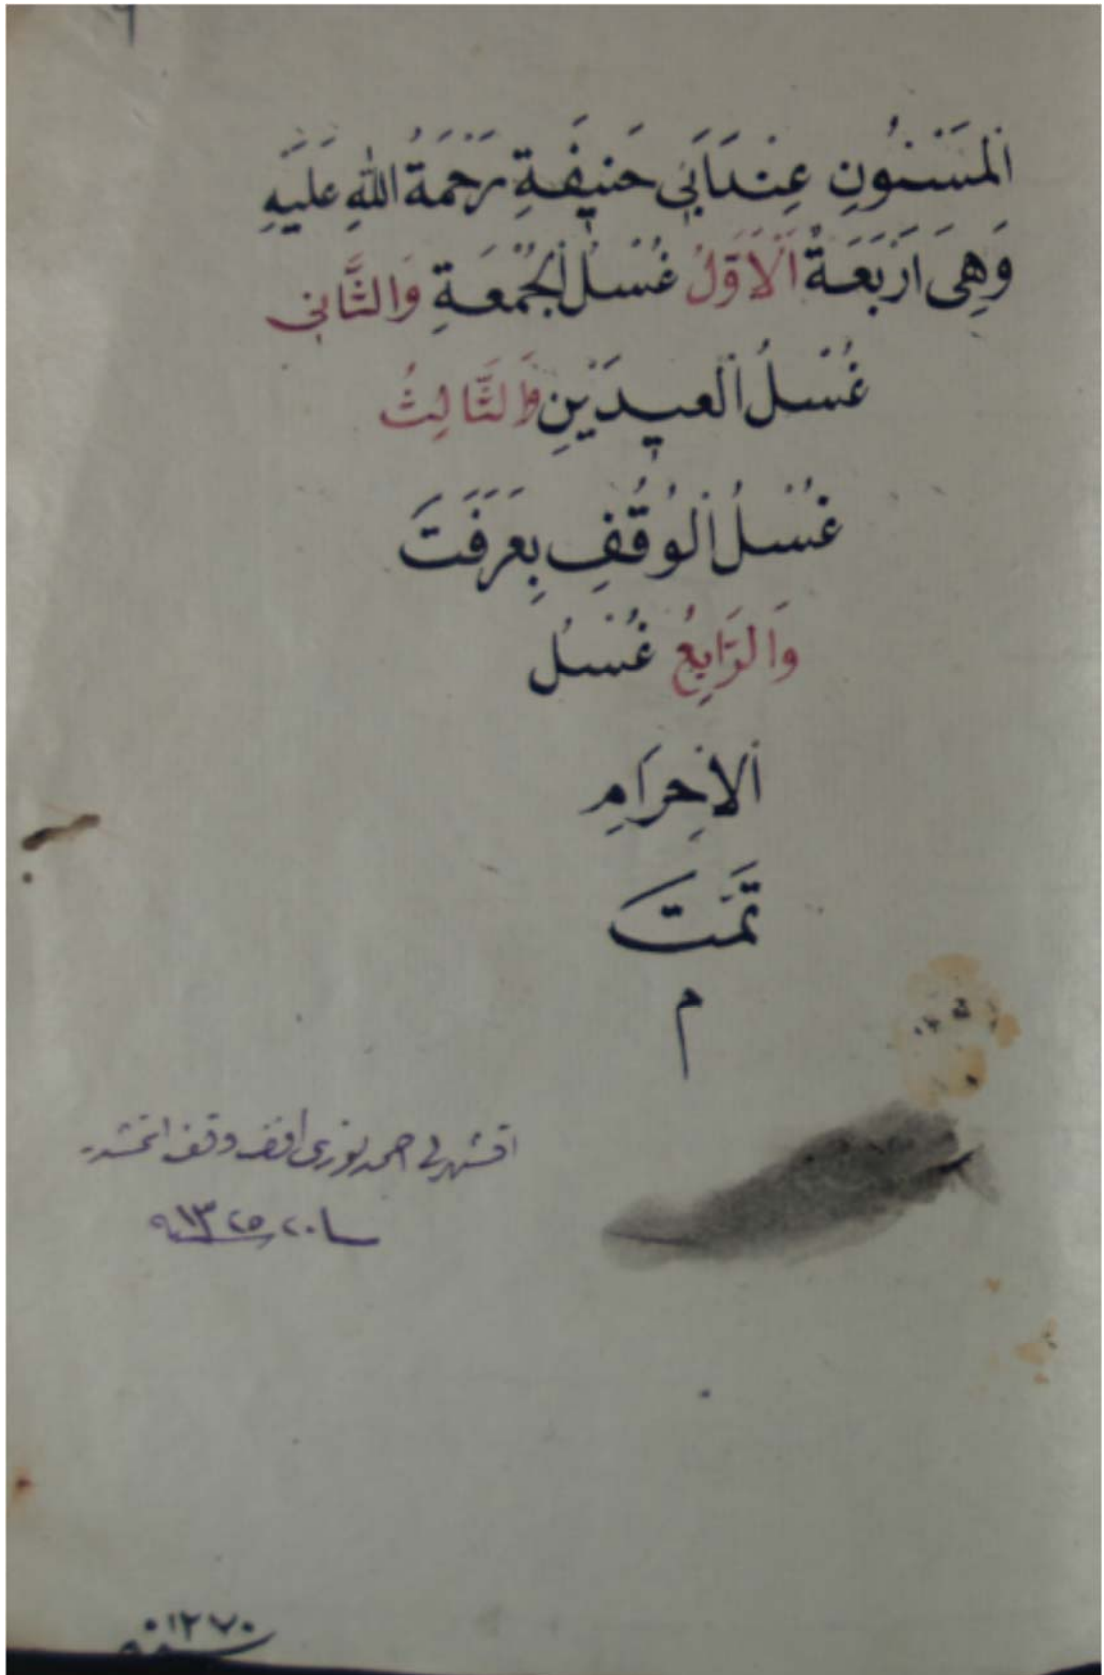 اَلْمَسْنُونِ عِنْدَاَبِي حَنِيفَةِ رَحْمَةُ اللّٰهِ عَلَيْهِ
وَهِىَ اَرْبَعَةٌ اَلْاَوَّلُ غُسْلُ الْجُمْعَةِ وَالثَّانِي
غُسْلُ الْعِيدَيْنِ وَالثَّالِثُ
غُسْلُ الْوُقُفِ بِعَرَفَتَ
وَالرَّابِعُ غُسْلُ
الْاِحْرَامِ
تَمَّتَ
م
احمد نورى افند وقف
١٣٢٥
سنه ١٢٧٠